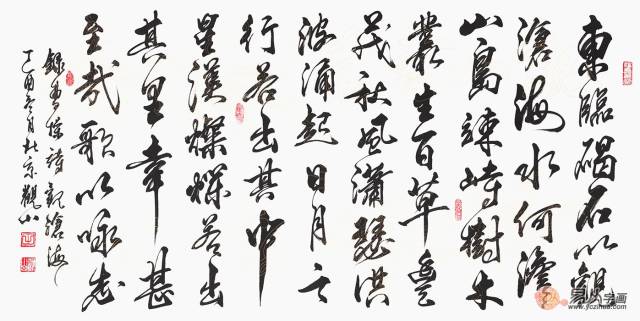 東臨碣石以觀
滄海水何澹
山島竦峙樹木
叢生百草豐
茂秋風瀟瑟洪
波涌起日月之
行若出其中
星漢燦爛若出
其里幸甚
至哉歌以咏志
錄曹操詩觀滄海
丁酉冬月於京
易从字画
www.yczihua.com